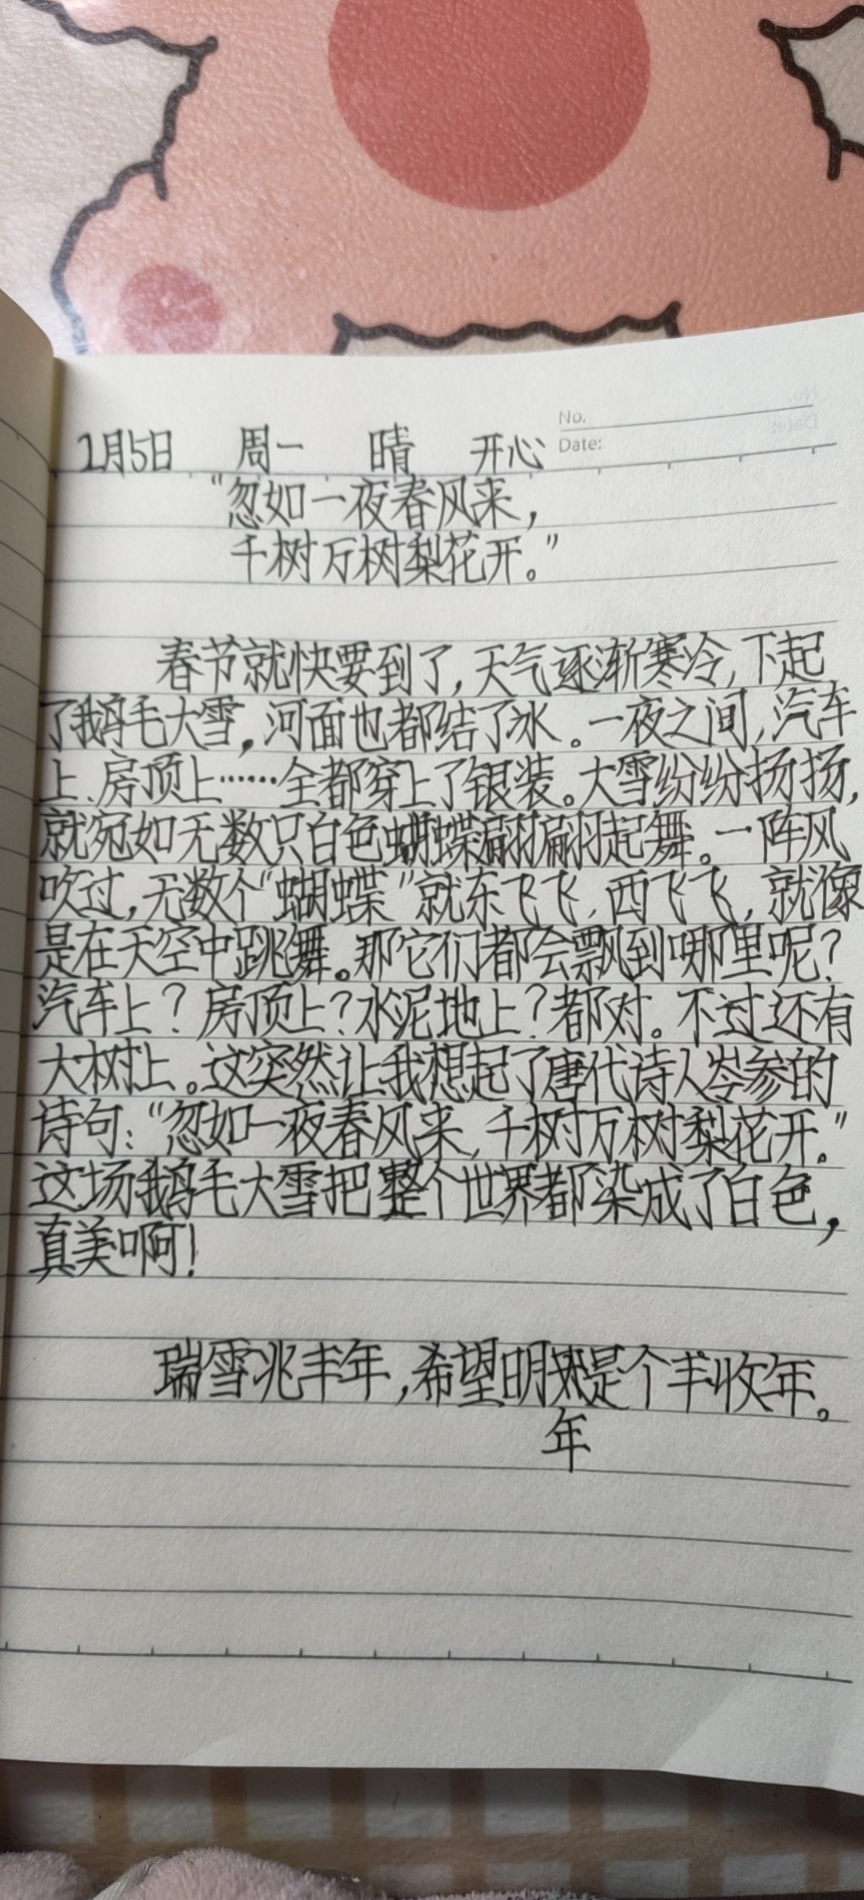 2月5日 周一 晴 开心
No.
Date:
"忽如一夜春风来,
千树万树梨花开。"
春节就快要到了,天气逐渐寒冷,下起
了鹅毛大雪,河面也都结了冰。一夜之间,汽车
上、房顶上……全都穿上了银装。大雪纷纷扬扬,
就宛如无数只白色蝴蝶翩翩起舞。一阵风
吹过,无数个"蝴蝶"就东飞飞,西飞飞,就像
是在天空中跳舞。那它们都会飘到哪里呢?
汽车上?房顶上?水泥地上?都对。不过还有
大树上。这突然让我想起了唐代诗人岑参的
诗句:"忽如一夜春风来,千树万树梨花开。"
这场鹅毛大雪把整个世界都染成了白色,
真美啊!
瑞雪兆丰年,希望明是个丰收年。
年